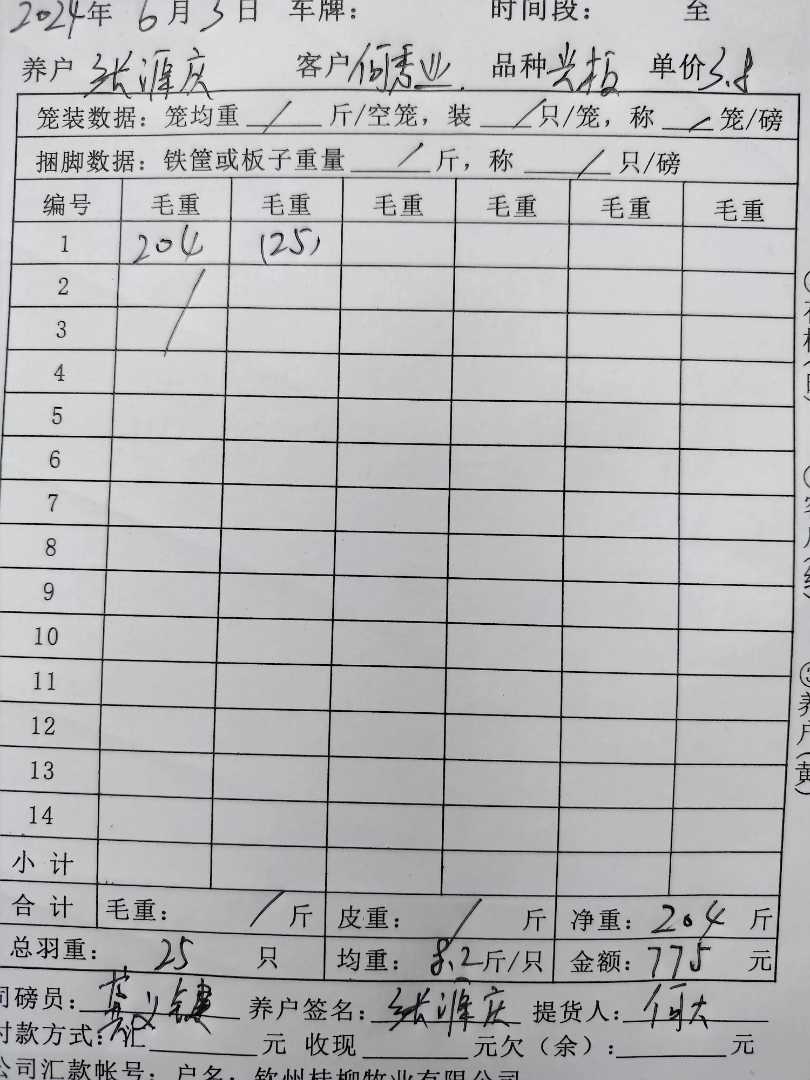 2024年 6月3日 车牌： 时间段： 至
养户 张滙庆 客户 何秀业 品种 单价 3.8
笼装数据：笼均重 / 斤/空笼，装 / 只/笼，称 / 笼/磅
捆脚数据：铁筐或板子重量 / 斤，称 / 只/磅
编号 毛重 毛重 毛重 毛重 毛重 毛重
1 204 (25)
2 /
3
4
5
6
7
8
9
10
11
12
13
14
小计
合计 毛重： / 斤 皮重： / 斤 净重：204 斤
总羽重： 25 只 均重：8.2斤/只 金额：775 元
司磅员： 养户签名：张滙庆 提货人：何大
付款方式：汇 元 收现 元欠（余）： 元
公司汇款帐号：户名：钦州桂柳牧业有限公司
养户（黄）